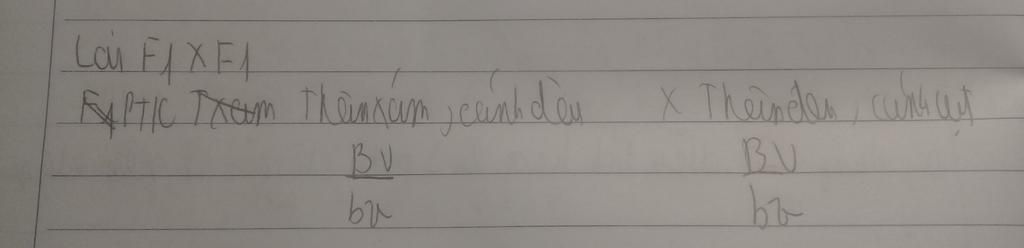 Lai F1 X F1
PT/C Thân xám, cánh dài X Thân đen, cánh cụt
BV BV
bv bv